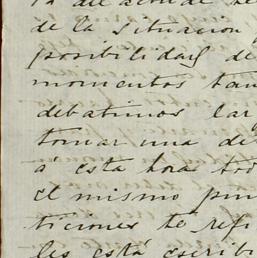 de la situacion
posibilidad de
momentos tan
debatimos lar
tomar una de
a esta hora tod
el mismo pun
ticiones te refi
les está escribi